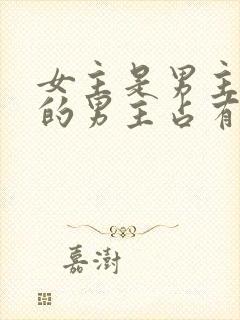 女主是男主
的男主占有
嘉澍